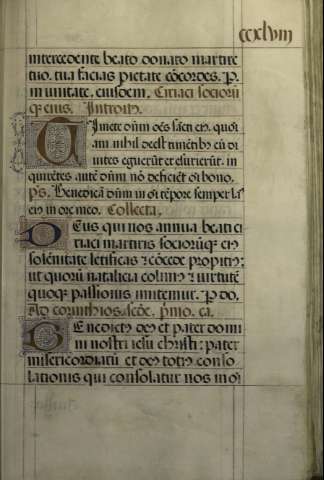 ccxlviii
intercedente beato donato martire
tuo. tua facias pietate cōcordes. P.
in unitate. eiusdem. Ciriaci sociorū
q̨ eius. Introitus.
Timete dūm oēs sācti eiꝰ. quoī
am nihil deest timētibꝰ eū di
uites eguerūt et esurierūt. in
quirētes autē dūm nō deficiēt oī bono.
ps. Benedicā dūm in oī tēpore semper laꝰ
eiꝰ in ore meo. Collecta.
DEus qui nos annua beati ci
riaci martiris sociorūq̨ eiꝰ
solēnitate letificas ꝛ cōcede propitiꝰ:
ut quorū natalicia colimꝰ ꝛ uirtutē
quoq̨ passionis imitemur. P do.
Ad corinthios. scōe. primo. ca.
BEnedictꝰ deꝰ et pater domi
ni nostri iesu christi: pater
misericordiarū et deꝰ totiꝰ conso
lationis qui consolatur nos in oī